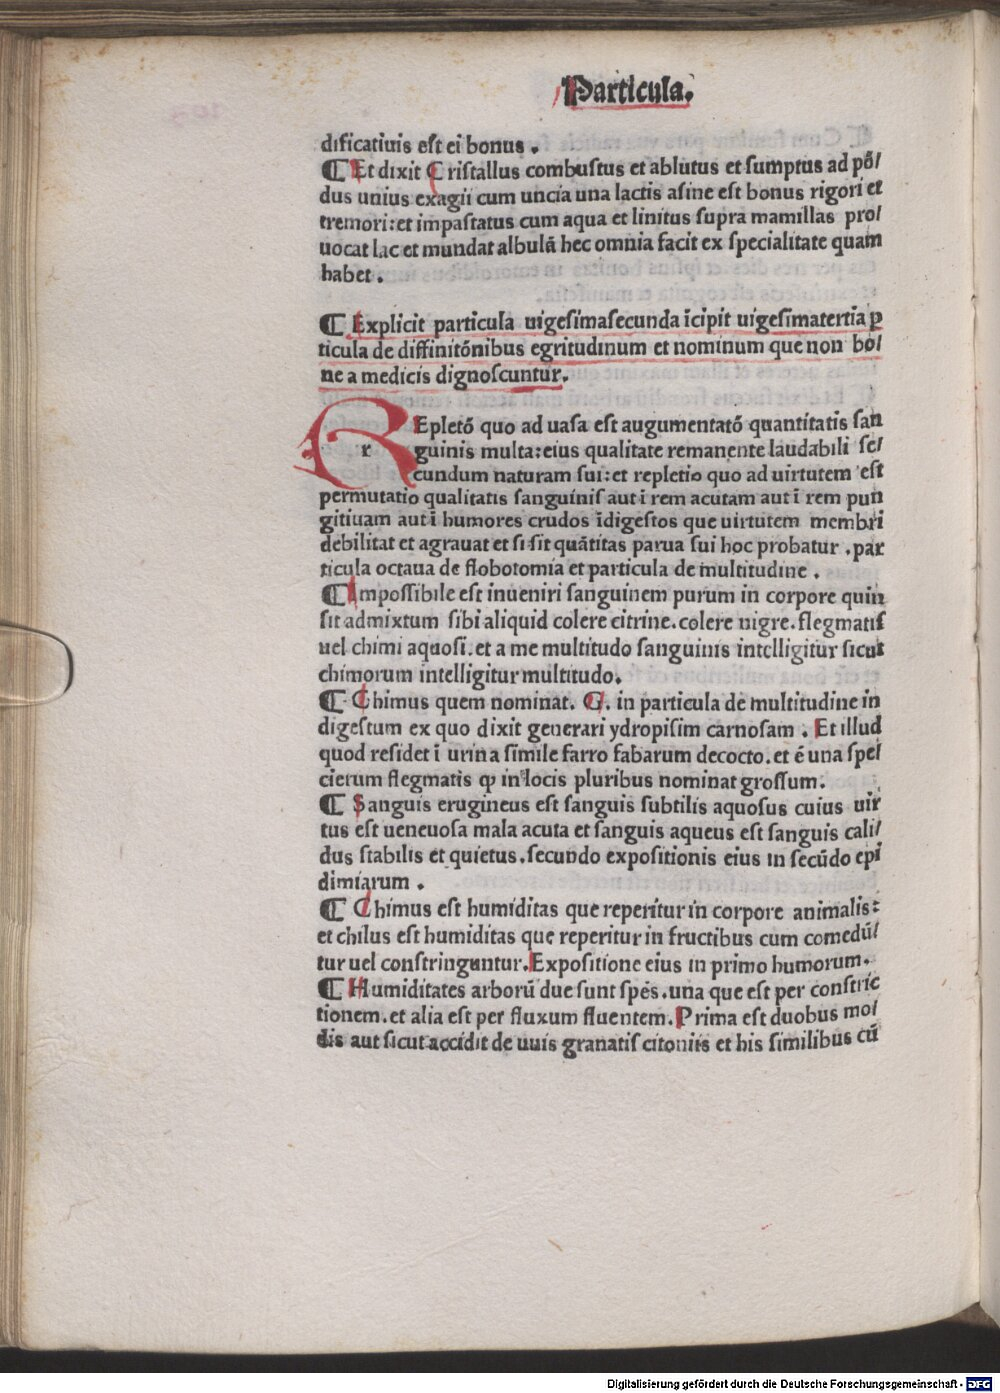 Particula.
dificatiuis est ei bonus .
¶ Et dixit Cristallus combustus et ablutus et sumptus ad põ/
dus unius exagii cum uncia una lactis asine est bonus rigori et
tremori: et impastatus cum aqua et linitus supra mamillas pro/
uocat lac et mundat albulã hec omnia facit ex specialitate quam
habet .
¶ Explicit particula uigesimasecunda ĩcipit uigesimatertia ꝑ
ticula de diffinitõnibus egritudinum et nominum que non bo/
ne a medicis dignoscuntur.
r
Epletõ quo ad uasa est augumentatõ quantitatis san
guinis multa: eius qualitate remanente laudabili se/
cundum naturam sui: et repletio quo ad uirtutem est
permutatio qualitatis sanguinis aut ĩ rem acutam aut ĩ rem pun
gitiuam aut ĩ humores crudos ĩdigestos que uirtutem membri
debilitat et agrauat et si sit quãtitas parua sui hoc probatur .par
ticula octaua de flobotomia et particula de multitudine .
¶ Impossibile est inueniri sanguinem purum in corpore quin
sit admixtum sibi aliquid colere citrine.colere nigre.flegmatis
uel chimi aquosi.et a me multitudo sanguinis intelligitur sicut
chimorum intelligitur multitudo.
¶ Chimus quem nominat. G. in particula de multitudine in
digestum ex quo dixit generari ydropisim carnosam . Et illud
quod residet ĩ urina simile farro fabarum decocto.et ẽ una spe/
cierum flegmatis ꝙ in locis pluribus nominat grossum.
¶ Sanguis erugineus est sanguis subtilis aquosus cuius uir
tus est uenenosa mala acuta et sanguis aqueus est sanguis cali/
dus stabilis et quietus.secundo expositionis eius in secũdo epi
dimiarum .
¶ Chimus est humiditas que reperitur in corpore animalis:
et chilus est humiditas que reperitur in fructibus cum comedũ/
tur uel constringuntur. Expositione eius in primo humorum.
¶ Humiditates arborũ due sunt spẽs.una que est per constric
tionem.et alia est per fluxum fluentem. Prima est duobus mo/
dis aut sicut accidit de uuis granatis citoniis et his similibus cũ
Digitalisierung gefördert durch die Deutsche Forschungsgemeinschaft - DFG